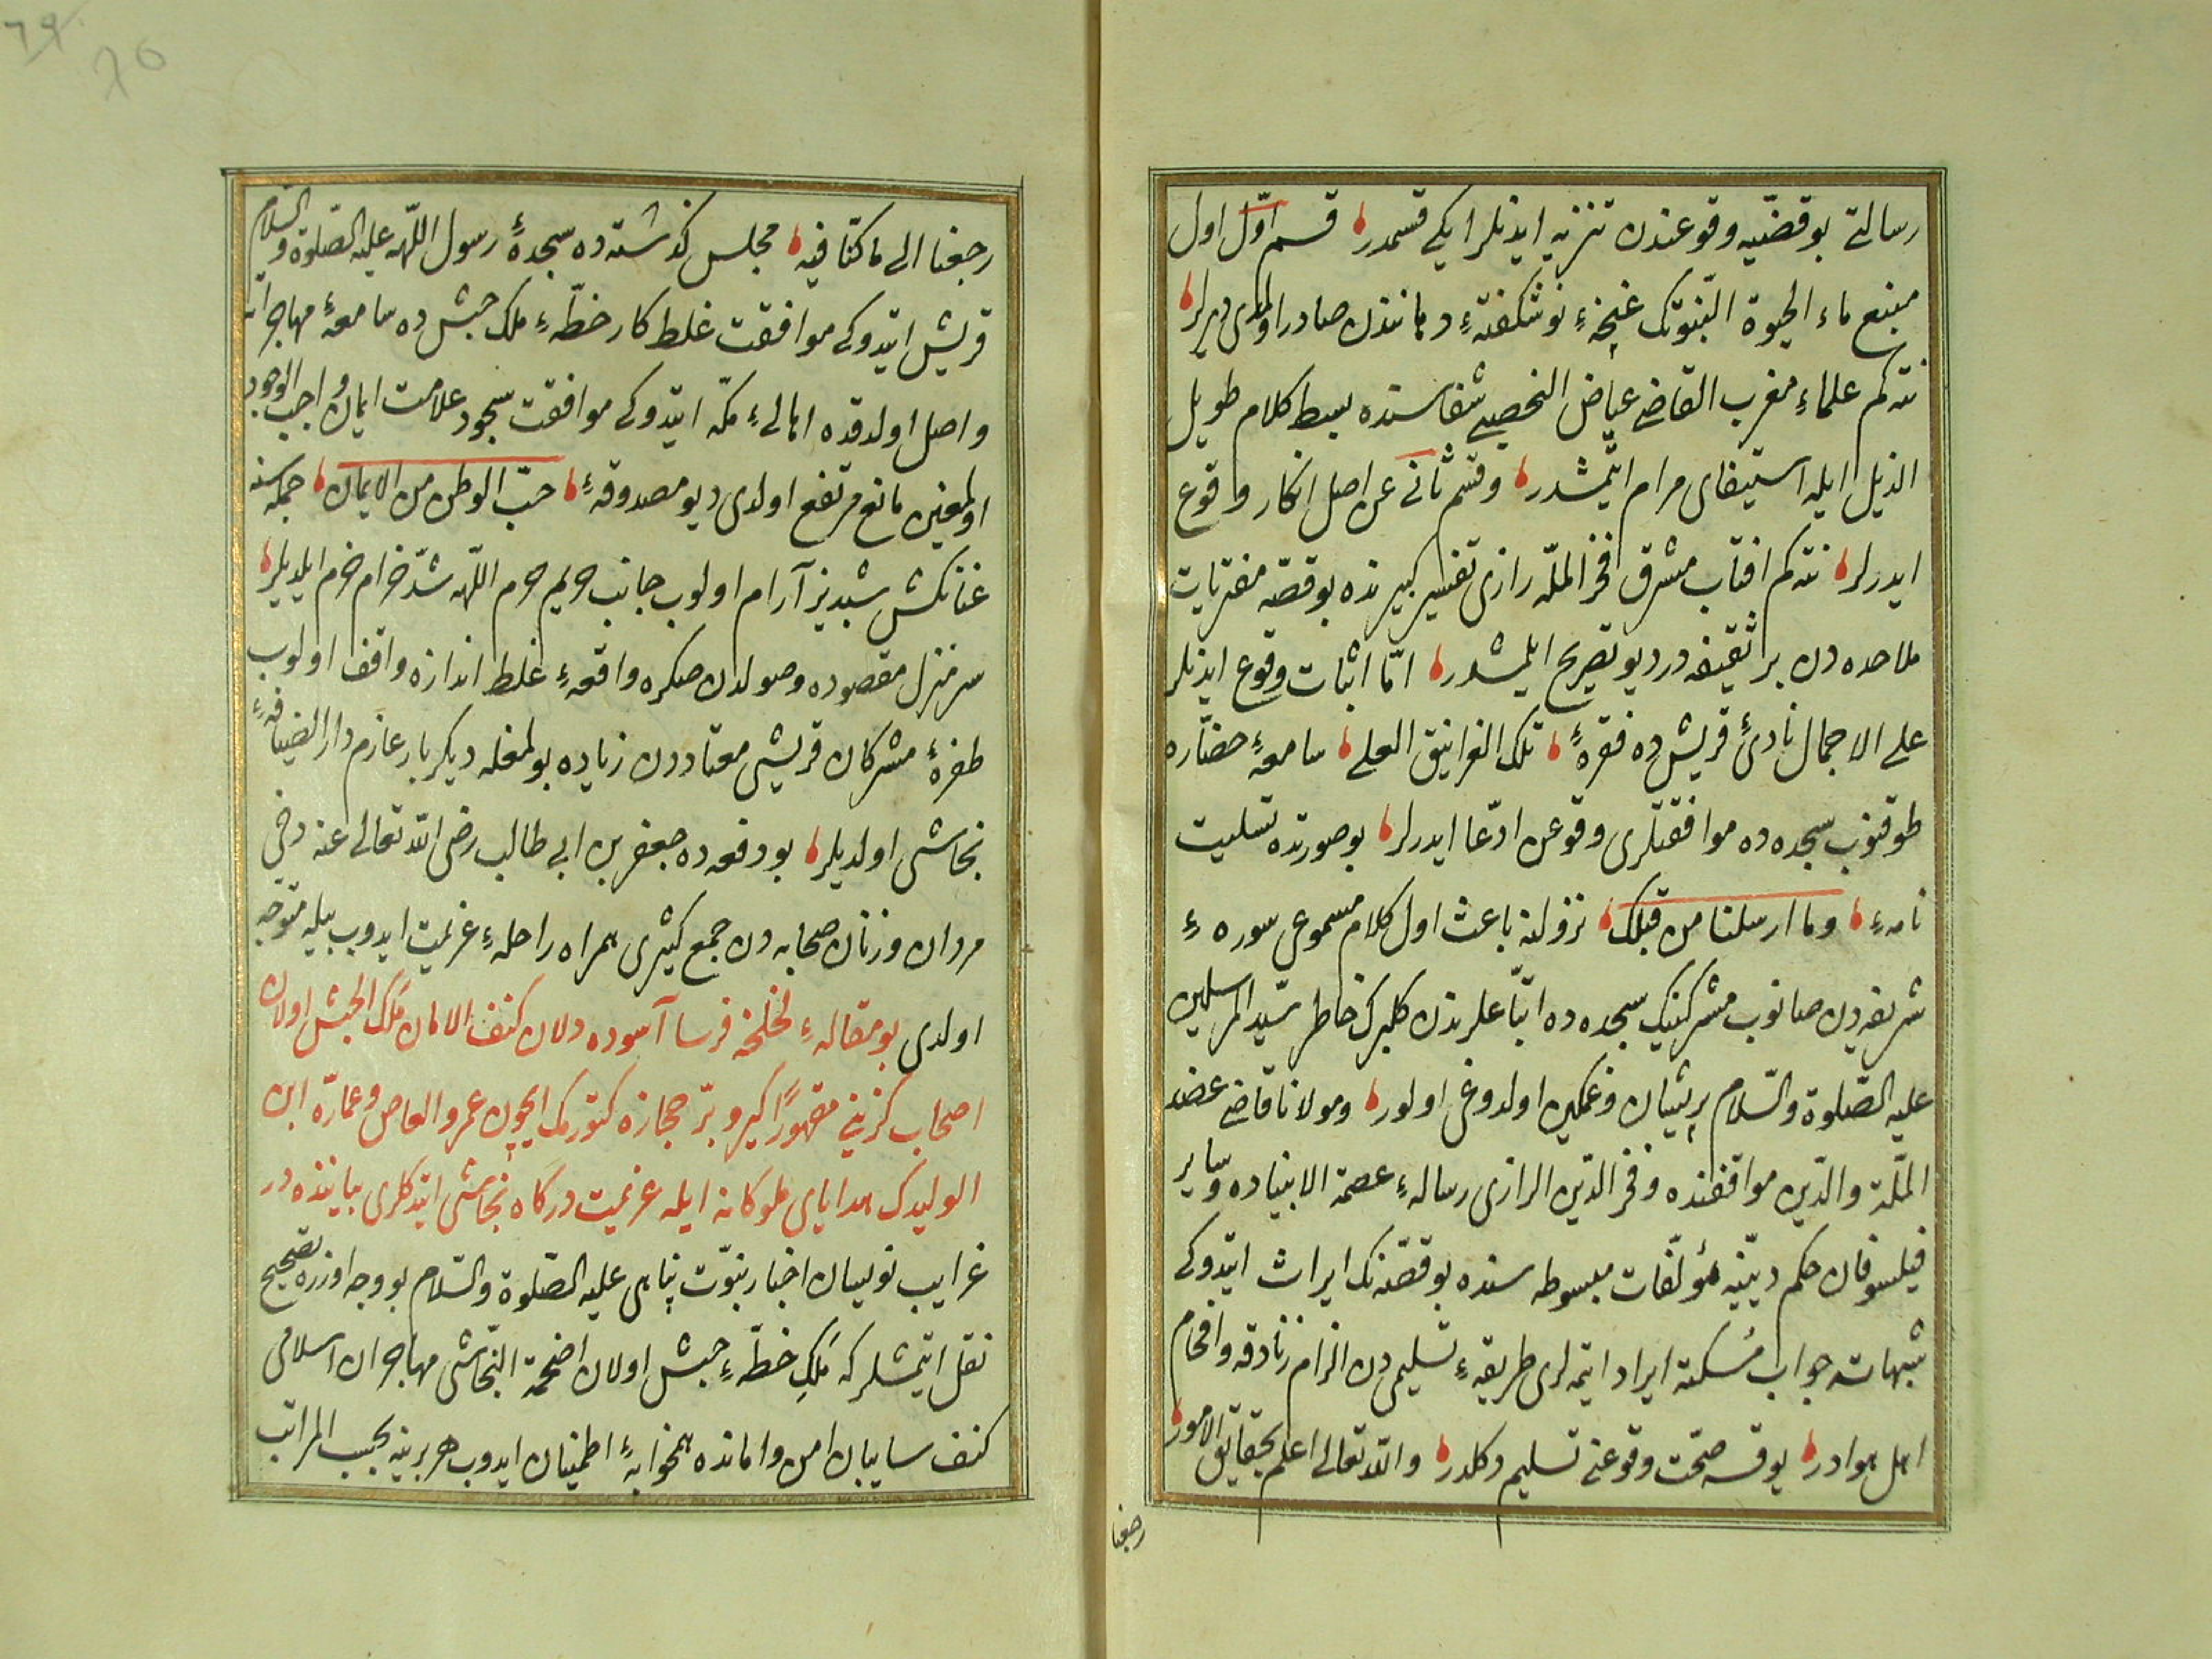 رسالتی بو قضیّیه وقوعندن تنزیه ایدنلر ایکی قسمدر قسم اوّل اول
منبع ماء الحیوة النّبوّتک غنچهٔ نوشکفتهٔ دهانندن صادر اولمدی دیرلر
نته کم علماءِ مغرب القاضی عیاض الیحصبی شفاسنده بسط کلام طویل
الذیل ایله استیفای مرام ایتمشدر و قسم ثانی عن اصل انکار وقوع
ایدرلر نته کم افتاب مشرق فخر الملّه رازی تفسیر کبیرنده بو قصّه مفتریات
ملاحده دن بر ثقیفه در دیو تصریح ایلمشدر امّا اثبات وقوع ایدنلر
علی الاجمال نادیٔ قریش ده فقرهٔ تلک الغرانیق العلی سامعهٔ حضّاره
طوقنوب سجده ده موافقتلری وقوعن ادّعا ایدرلر بو صورتده تسلیت
نامهٔ وما ارسلنا من قبلک نزولنه باعث اول کلام مسموعی سورهٔ
شریفه دن صانوب مشرکینک سجده ده اتباعلرندن کلبرک خاطر سیّد المرسلین
علیه الصّلوة والسّلام پریشان و غمکین اولدوغی اولور و مولانا قاضی عضد
الملّة والدّین مواقفنده و فخر الدّین الرازی رسالهٔ عصمة الانبیاده و سایر
فیلسوفان حکم دینیّه مؤلّفات مبسوطه سنده بو قصّه نک ایراث ایتدوکی
شبهاته جواب مسکته ایراد ایتمه لری طریقهٔ تسلیمی دن الزام زنادقه و افحام
اهل هوادر یوقسه صحّت وقوعنی تسلیم دکلدر والله تعالی اعلم بحقایق الامور
رجعنا
رجعنا الی ما کنّا فیه مجلس کذشته ده سجدهٔ رسول اللّه علیه الصّلوة والسلام
قریش ایتدوکی موافقت غلط کار خطّهٔ ملک حبش ده سامعهٔ مهاجرانه
واصل اولدقده اهالیٔ مکّه ایتدوکی موافقت سجود علامت ایمان واجب الوجود
اولمغین مانع مرتفع اولدی دیو مصدوقهٔ حبّ الوطن من الایمان جمله سنه
عنانکش شبدیز آرام اولوب جانب حریم حرم اللّه شدّ خرام خرم ایلدیلر
سر منزل مقصوده وصولدن صکره واقعهٔ غلط اندازه واقف اولوب
طفرهٔ مشرکان قریشی معتاددن زیاده بولمغله دیکر بار عازم دار الضیافهٔ
نجاشی اولدیلر بو دفعه ده جعفر بن ابی طالب رضی الله تعالی عنه دخی
مردان و زنان صحابه دن جمع کثیری همراه راحلهٔ عزیمت ایدوب بیله متوجّه
اولدی بو مقالهٔ لخلخه فرسا آسوده دلان کنف الامان ملک الحبش اولان
اصحاب کزینی مقهورًا کیرو برّ حجازه کتورمک ایچون عمرو العاص و عمارّه ابن
الولیدک هدایای ملوکانه ایله عزیمت درکاه نجاشی ایتدکلری بیاننده در
غرایب نویسان اخبار نبوّت پناهی علیه الصّلوة والسّلام بو وجه اوزره تصحیح
نقل ایتمشلر که ملک خطّهٔ حبش اولان اضحمة النّجاشی مهاجران اسلامی
کنف سایبان امن و امانده همخوابهٔ اطمینان ایدوب هر برینه بحسب المراتب